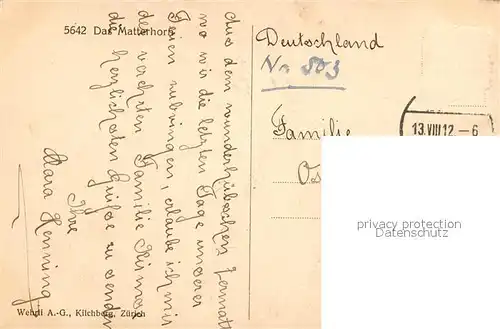 5642 Das Matterhorn
Aus dem wunderhübschen Zermatt
wo wir die letzten Tage unserer
Ferien zubringen, erlaube ich mir
der verehrten Familie
die herzlichsten Grüße zu senden
Ihre
Klara Henning
Deutschland
No 503
Familie
13.VIII.12.–6
privacy protection
Datenschutz
Wehrli A.-G., Kilchberg, Zürich